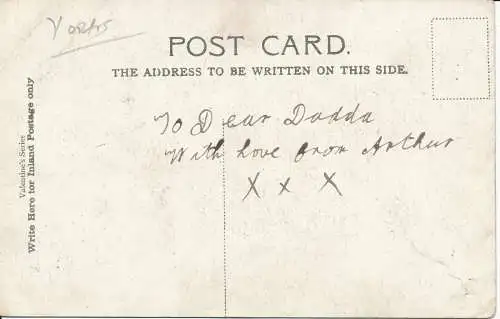 Yorks
POST CARD.
THE ADDRESS TO BE WRITTEN ON THIS SIDE.
Valentine's Series
Write Here for Inland Postage only
To Dear Dadda
With love from Arthur
X x X